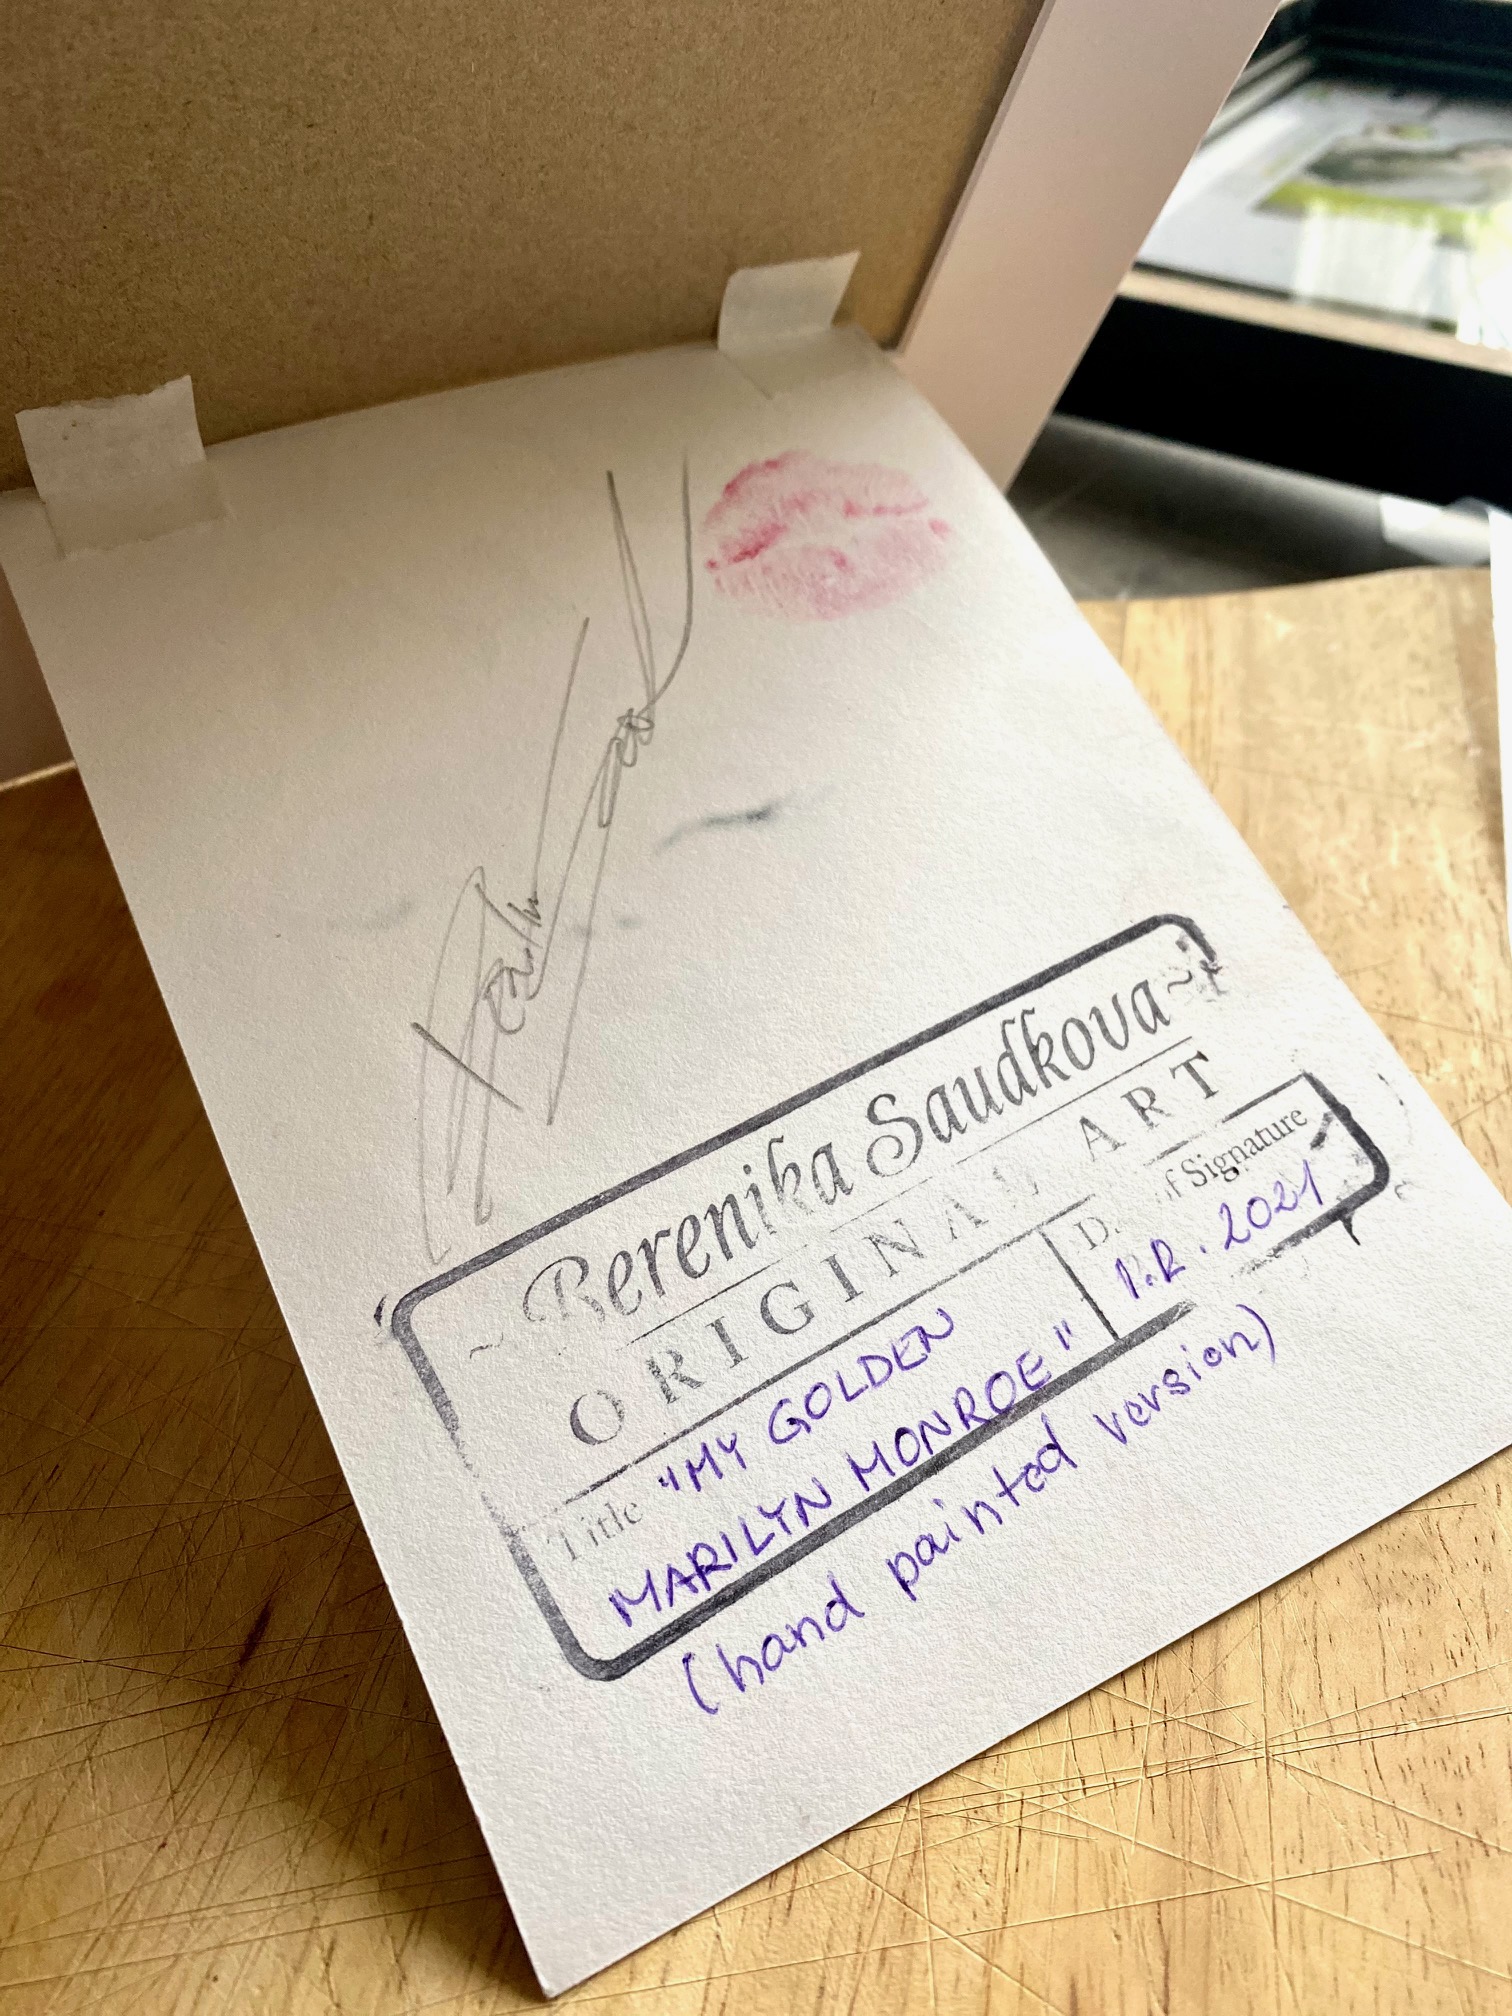 ~ Berenika Saudkova ~
ORIGINAL ART
Title "MY GOLDEN
MARILYN MONROE"
of Signature
2021
(hand painted version)